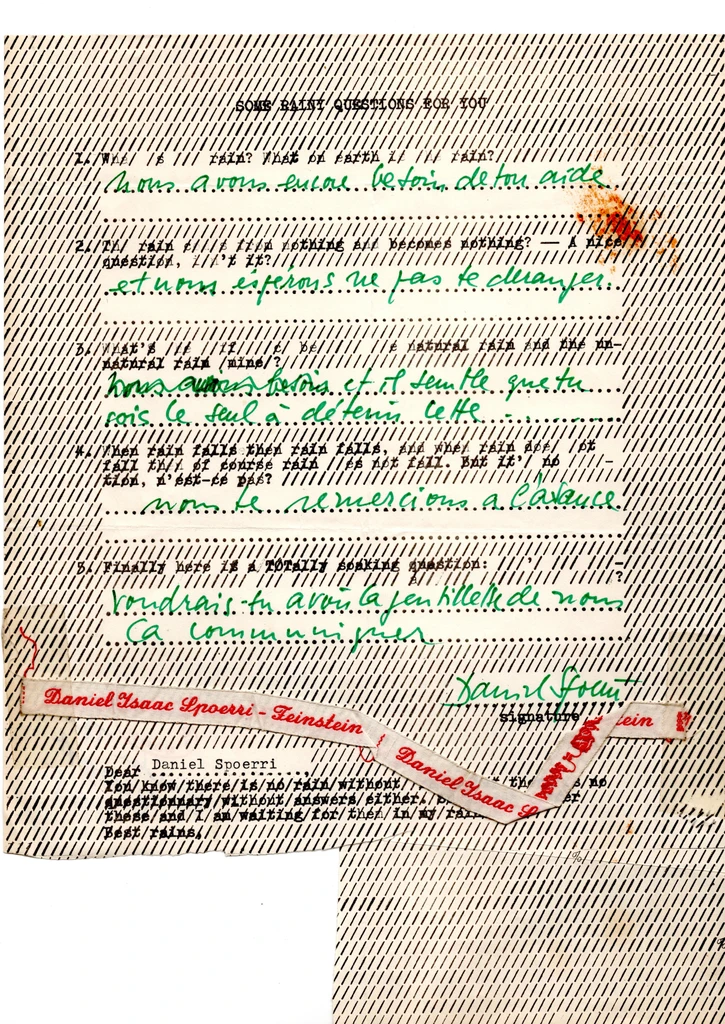 SOME RAINY QUESTIONS FOR YOU
1. rain? What on earth rain?
nous avons encore besoin de ton aide
2. rain from nothing and becomes nothing? — A nice
question,
et nous espérons ne pas te déranger.
3. What's natural rain and the un-
natural rain /mine/?
nous avons besoin et il semble que tu
sois le seul à détenir cette ...
4. When rain falls then rain falls, and when rain
fall of course rain not fall. But no -
tion, n'est-ce pas?
nous te remercions a l'avance
5. Finally here is a TOTally soaking question: -
?
voudrais-tu avoir la gentillesse de nous
ça communiquer
Daniel Spoerri
signature
Daniel Isaac Spoerri - Feinstein
tein
Daniel Isaac S
Dear Daniel Spoerri,
You know there is no rain without no
questionnary without answers either.
these and I am waiting for them in my
Best rains,